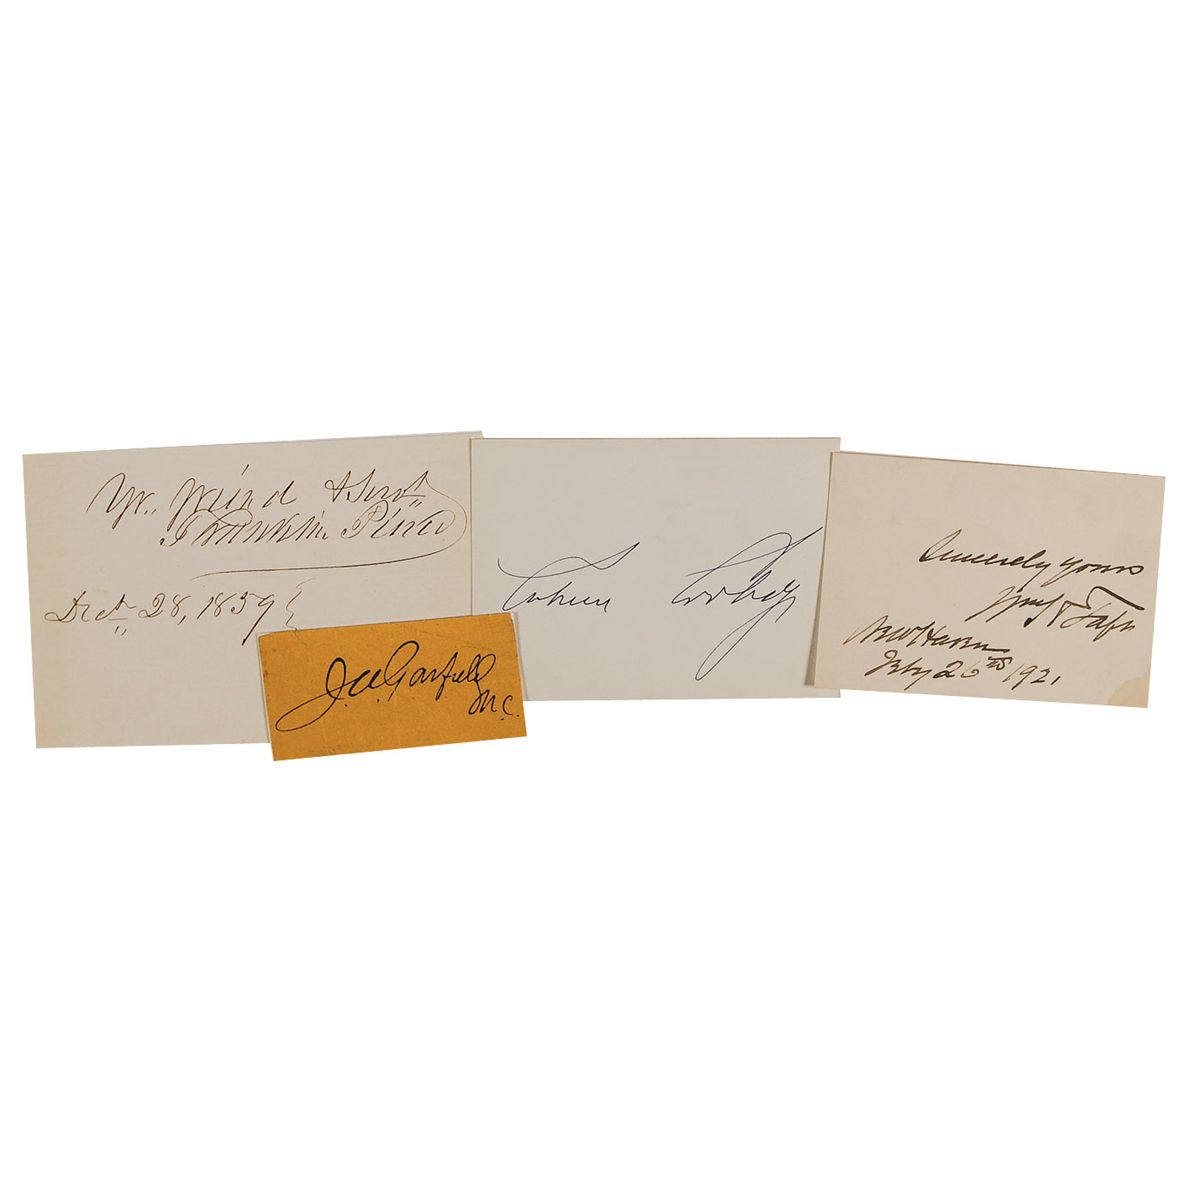 Yr. friend & Servt.
Franklin Pierce
Dec. 28, 1859
J. A. Garfield
M.C.
Calvin Coolidge
Sincerely yours
Wm H Taft
New Haven
Feby 26th 1921